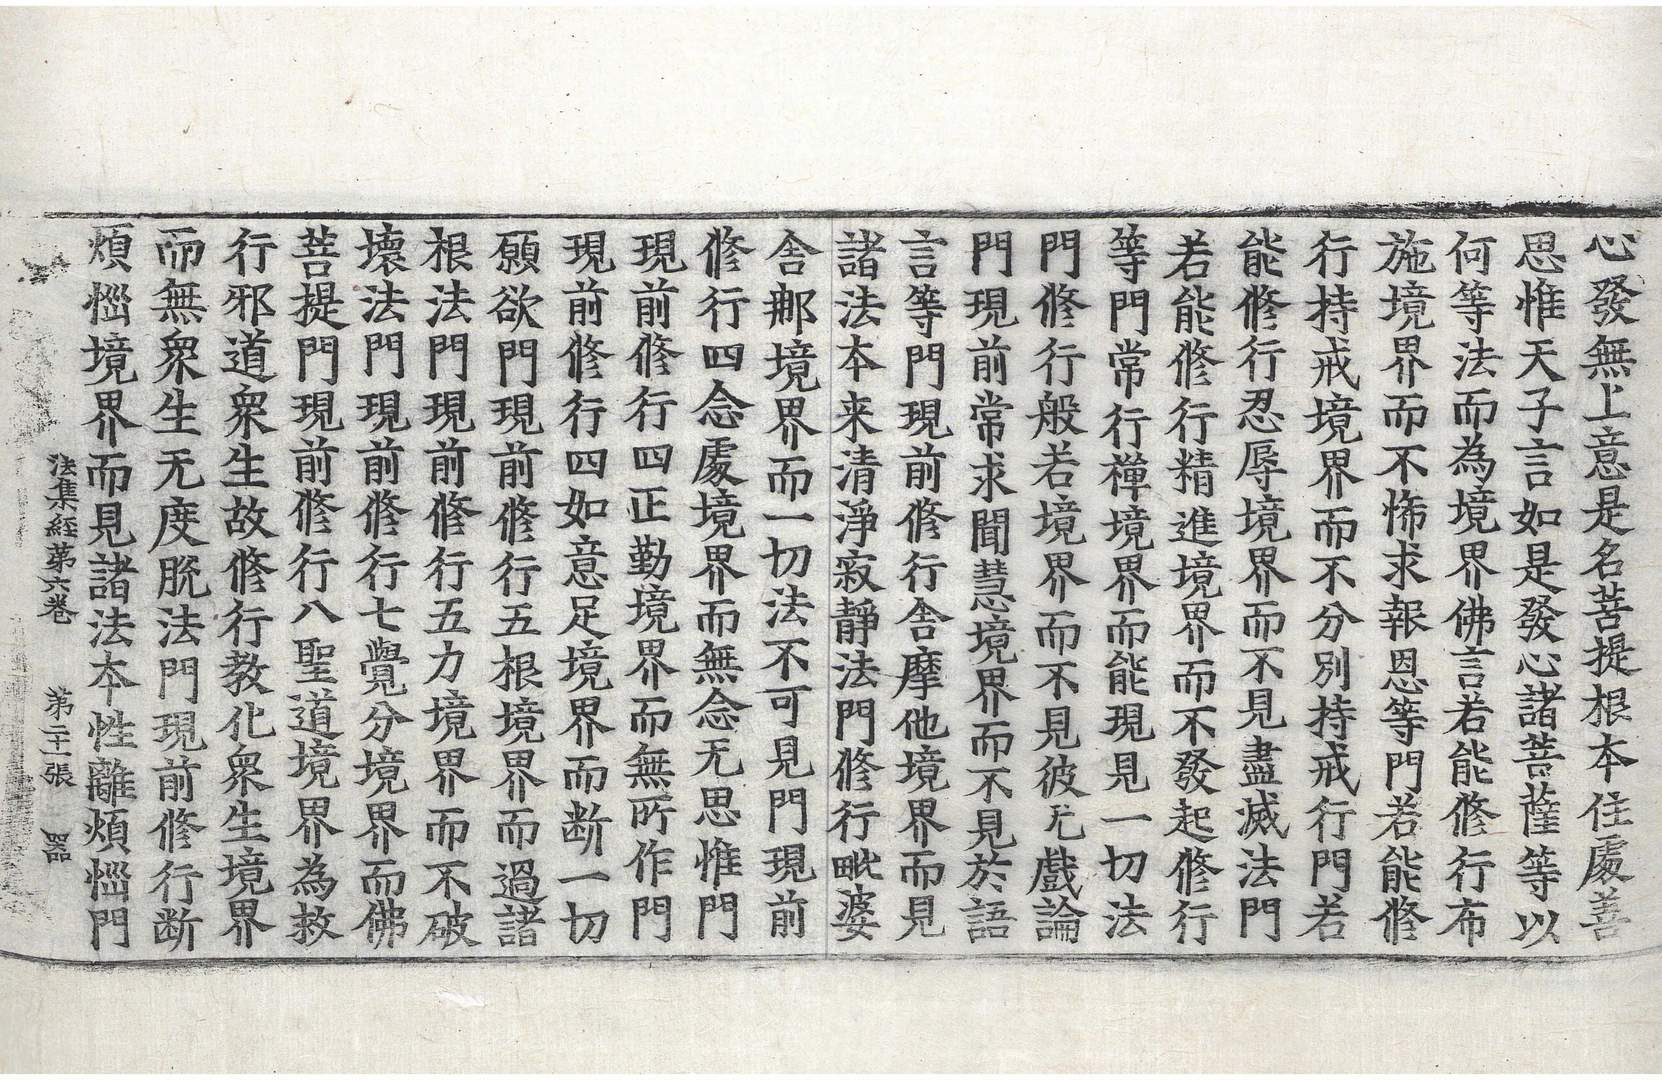 心發無上意是名菩提根本住處善
思惟天子言如是發心諸菩薩等以
何等法而為境界佛言若能修行布
施境界而不悕求報恩等門若能修
行持戒境界而不分別持戒行門若
能修行忍辱境界而不見盡滅法門
若能修行精進境界而不發起修行
等門常行禪境界而能現見一切法
門修行般若境界而不見彼无戲論
門現前常求聞慧境界而不見於語
言等門現前修行舍摩他境界而見
諸法本来清淨寂靜法門修行毗婆
舍那境界而一切法不可見門現前
修行四念處境界而無念无思惟門
現前修行四正勤境界而無所作門
現前修行四如意足境界而断一切
願欲門現前修行五根境界而過諸
根法門現前修行五力境界而不破
壞法門現前修行七覺分境界而佛
菩提門現前修行八聖道境界為救
行邪道衆生故修行教化衆生境界
而無衆生无度脫法門現前修行断
煩惱境界而見諸法本性離煩惱門
法集經第六卷 第二十一張 器